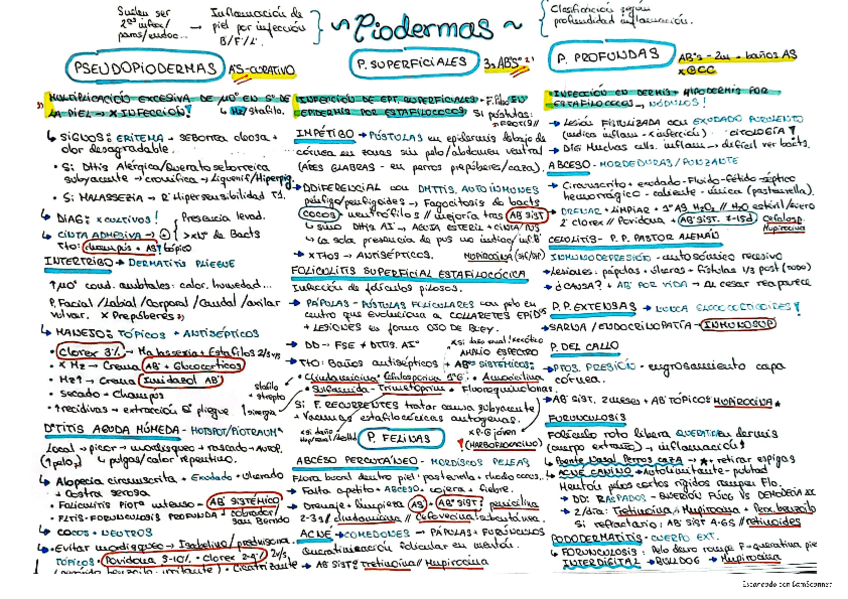 Suelen ser
2ª infecc/
paras/endoc...
Inflamación de
piel por infección
B/F/L.
~ Piodermas ~
Clasificación según
profundidad inflamación.
PSEUDOPIODERMAS
AS-CURATIVO
MULTIPLICACIÓN EXCESIVA DE µ0º EN Sº DE
LA PIEL → X INFECCIÓN!
↳ Hz/stafilo.
↳ SIGNOS: ERITEMA + SEBORREA OLEOSA +
olor desagradable.
• Si Dttis Alérgica/Queratoseborreica
subyacente → cronifica → Liquenif/Hiperpig.
• Si MALASSEZIA → R' Hipersensibilidad T1.
↳ DIAG: x CULTIVOS!
Presencia levad.
↳ CINTA ADHESIVA → +
> xLº de Bacts
TTO: champús + AS tópico
INTERTRIGO → DERMATITIS PLIEGUE
↑µ0º cond. ambtales: calor, humedad...
P. Facial/Labial/Corporal/Caudal/axilar
vulvar. x Prepúberes
↳ MANEJO: TÓPICOS + ANTISÉPTICOS
• Clorex 3% → Malassezia + Estafilos 2/3
• x Hz → Crema AB + Glucocorticos
• Hz↑ → Crema Imidazol AB
• secado + Champús
• ↑recidivas → extracción Qº pliegue
stafilo
strepto
sinergia
DºTITIS AGUDA HÚMEDA - HOTSPOT/PIOTRAUMª
Local → picor → mordisqueo + rascado → AUTOP.
(↑pelo) ↳ pulgas/calor repentino.
↳ Alopecia circunscrita + Exudado + Ulcerado
+ Costra serosa
• Foliculitis Piotª intenso - AB SISTÉMICO
• FLTIS-FORUNCULOSIS PROFUNDA → Labrador/
San Bernardo
↳ COCOS + NEUTROS
↳ Evitar mordisqueo → Isabelino/prednisona.
TÓPICOS • Povidona 5-10% • Clorex 2-4% 2v/s
P. SUPERFICIALES
3s ABSº
INFECCIÓN DE EPT. SUPERFICIALES • F. Piloso
EPIDERMIS POR ESTAFILOCOCOS
Si pústulas:
IMPÉTIGO → PÚSTULAS en epidermis debajo de
córnea en zonas sin pelo/abdomen ventral
(AÑES GLABRAS - en perros prepúberes/caza).
↳ DDIFERENCIAL con DMTTIS. AUTOINMUNES
pénfigo/penfigoides → Fagocitosis de bacts
COCOS neutrófilos // mejoría tras AB SIST
↳ sino DMTTIS AI → AGUJA ESTÉRIL + CINTA/PUS
↳ La sola presencia de pus no indica inf. B
↳ x TTOS → ANTISÉPTICOS. MUPIROCINA
FOLICULITIS SUPERFICIAL ESTAFILOCÓCICA
Infección de folículos pilosos.
↳ PÁPULAS - PÚSTULAS FOLICULARES con pelo en
centro que evoluciona a COLLARETES EPIDº
+ LESIONES en forma OJO DE BUEY.
↳ DD → FSE + DTTIS. AIº
AMPLIO ESPECTRO
↳ TTO: Baños antisépticos + ABºº SISTÉMICOS:
• Clindamicina • Cefalosporina 1ªG • Amoxicilina
• Sulfamida - Trimetoprim + Fluoroquinolonas.
Si F. RECURRENTES tratar causa subyacente
+ Vacunas estafilocócicas autógenas.
x P. G jóven
(MARBOFLOXACINO)
P. FELINAS
ABSCESO PERCUTÁNEO - MORDISCOS PELEAS
Flora bucal dentro piel: pasterella + rhodococcus..
↳ Falta apetito - ABSCESO. cojera + fiebre.
↳ Drenaje + Limpieza AS + ABº SIST: penicilina
2-3s / clindamicina // Cefovecina subcutánea.
ACNÉ → COMEDONES → PÁPULAS + FORÚNCULOS
Queratinización folicular en mentón.
↳ AB SISTº Tretinoína // Mupirocina
P. PROFUNDAS
ABºs - 2m + baños AS
x GCC
• INFECCIÓN EN DERMIS + HIPODERMIS POR
ESTAFILOCOCOS → NÓDULOS!
↳ Lesión FISTULIZADA con EXUDADO PURULENTO
(indica inflam - x infección) CITOLOGÍA!
↳ DIG Muchas céls. inflam → difícil ver bacts.
ABCESO - MORDEDURAS/PUNZANTE
↳ Circunscrito + exudado - Fluido - fétido - séptico
hemorrágico - caliente - única (pasterella).
↳ DRENAR + LIMPIAR + 1º AS H2O2 // H2O estéril/suero
2º clorex // Povidona + AB SIST. 5-15d
Cefalosp.
Mupirocina
CELULITIS - P. P. PASTOR ALEMÁN
INMUNODEPRESIÓN - autosómico recesivo
↳ Lesiones: pápulas + úlceras + fístulas 1/3 post (TODO)
↳ ¿CAUSA? + AB POR VIDA → Al cesar reaparece
P.P. EXTENSAS → NUNCA GLUCOCORTICOIDES!
↳ SARNA/ENDOCRINOPATÍA → INMUNOSUP
P. DEL CALLO
↳ PTOS. PRESIÓN - engrosamiento capa
córnea.
↳ AB SIST. 2 meses + AB TÓPICO: MUPIROCINA
FORUNCULOSIS
Folículo roto libera QUERATINA en dermis
(cuerpo extraño) → inflamación!
↳ Puente Nasal Perros CAZA → ★ + retirar espigas
↳ ACNÉ CANINO → Autolimitante - pubtad
Mentón pelos cortos rígidos rompen Flo.
↳ DD: RASPADOS - QUERIÓN FÚNG VS DEMODEX
↳ 2/día: Tretinoína + Mupirocina + Perox benzoilo
Si refractario: AB SIST 4-6S // retinoides
PODODERMATITIS - CUERPO EXT.
↳ FORÚNCULOSIS: Pelo duro rompe F → queratina pie
INTERDIGITAL → BULLDOG → Mupirocina
Escaneado con CamScanner